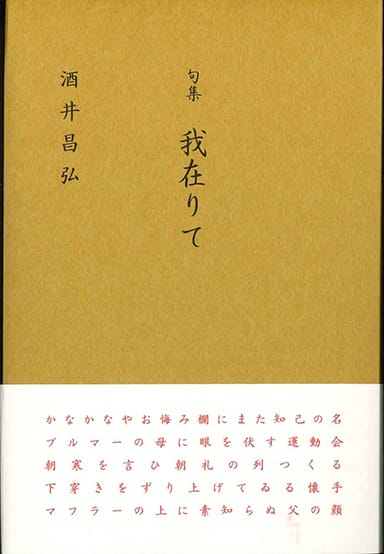 句集 我在りて
酒井昌弘
かなかなやお悔み欄にまた知己の名
ブルマーの母に眼を伏す運動会
朝寒を言ひ朝礼の列つくる
下穿きをずり上げてゐる懐手
マフラーの上に素知らぬ父の顔